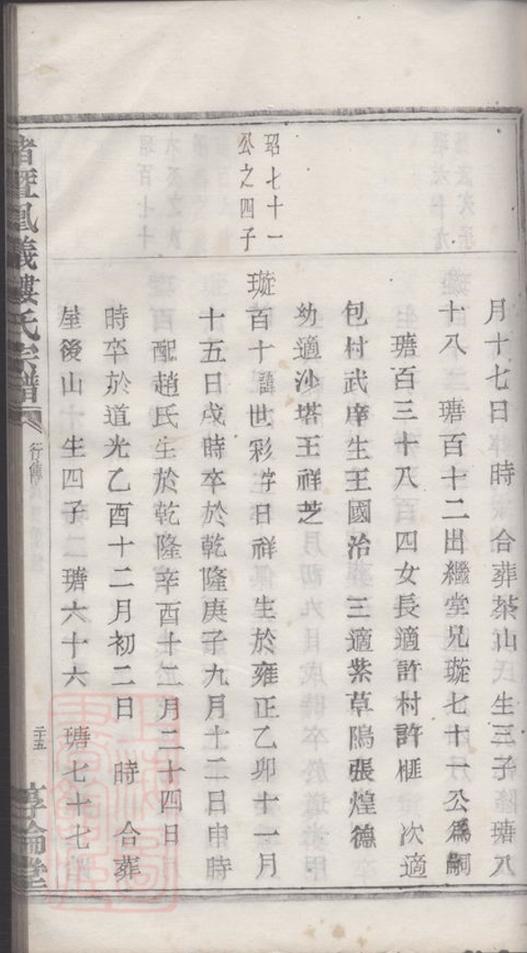 月十七日　時　合葬茶山　生三子　瑭八
十八　瑭百十二出繼堂兄璇七十一公為嗣
瑭百三十八　四女長適許村許榧　次適
包村武庠生王國治　三適紫草隖張煌德
幼適沙塔王祥芝
昭七十一
公之四子
璇百十諱世彩字日祥　生於雍正乙卯十一月
十五日戌時卒於乾隆庚子九月十二日申時
配趙氏生於乾隆辛酉十二月二十四日
時卒於道光乙酉十二月初二日　時　合葬
屋後山　生四子　瑭六十六　瑭七十七
諸暨鳳儀樓氏宗譜
行傳
二十五
惇倫堂